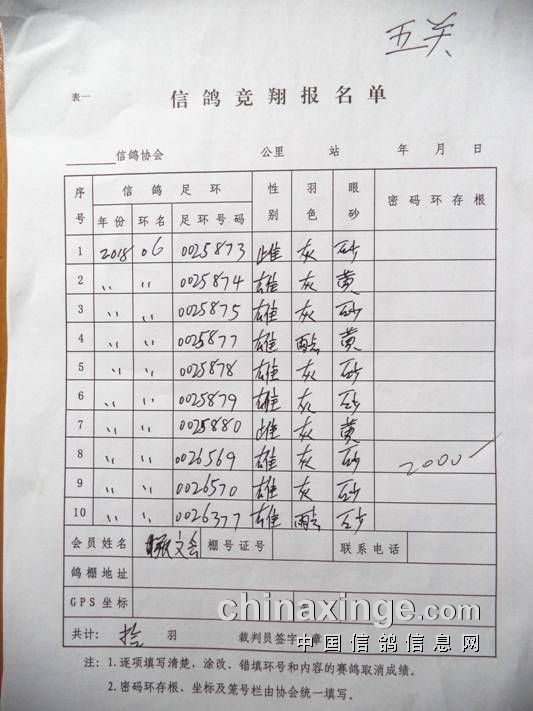 五关
表一
信鸽竞翔报名单
信鸽协会 公里 站 年 月 日
序号 信鸽足环 性别 羽色 眼砂 密码环存根
年份 环名 足环号码
1 2018 06 0025873 雌 灰 砂
2 〃 〃 0025874 雄 灰 黄
3 〃 〃 0025875 雄 灰 砂
4 〃 〃 0025877 雄 雨点 黄
5 〃 〃 0025878 雄 灰 砂
6 〃 〃 0025879 雄 灰 砂
7 〃 〃 0025880 雌 灰 黄
8 〃 〃 0026569 雄 灰 砂 2000
9 〃 〃 0026570 雄 灰 砂
10 〃 〃 0026377 雄 雨点 砂
会员姓名 文会 棚号证号 联系电话
鸽棚地址
GPS坐标
共计: 拾 羽 裁判员签字 章:
注: 1.逐项填写清楚,涂改、错填环号和内容的赛鸽取消成绩。
2.密码环存根、坐标及笼号栏由协会统一填写。
chinaxinge.com
中国信鸽信息网